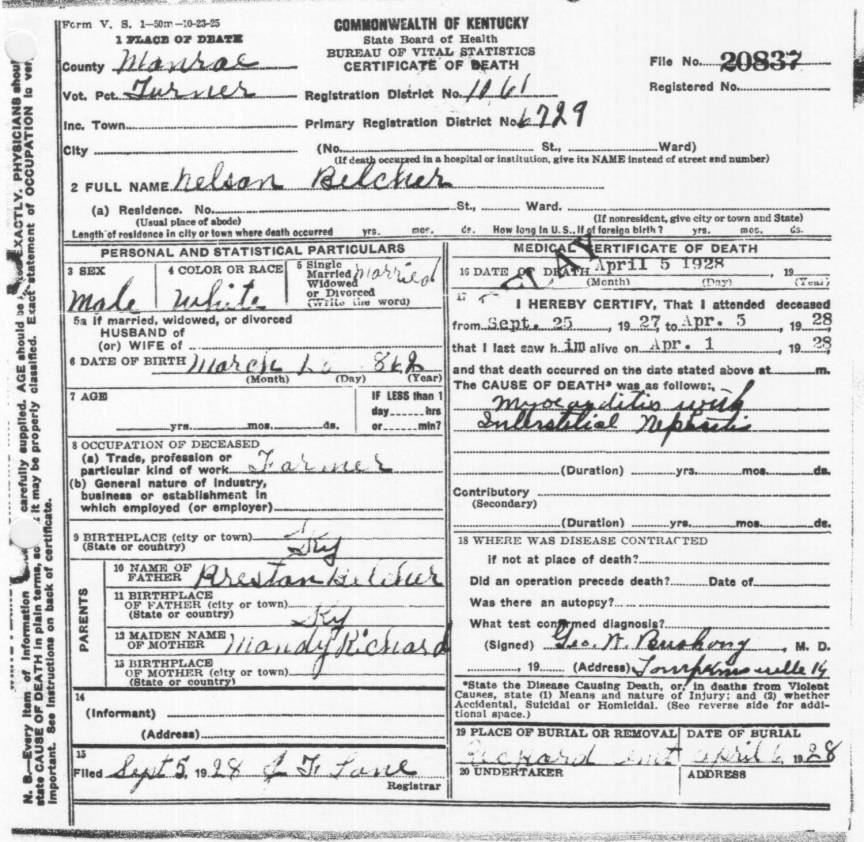 Form V. S. 1—50m—10-23-25
COMMONWEALTH OF KENTUCKY
State Board of Health
BUREAU OF VITAL STATISTICS
CERTIFICATE OF DEATH
1 PLACE OF DEATH
County Monroe
Vot. Pct. Turner
Inc. Town
City
Registration District No. 1061
Primary Registration District No. 6729
File No. 20837
Registered No.
(No. St., Ward)
(If death occurred in a hospital or institution, give its NAME instead of street and number)
2 FULL NAME Nelson Belcher
(a) Residence. No. St., Ward.
(Usual place of abode) (If nonresident, give city or town and State)
Length of residence in city or town where death occurred yrs. mos. ds. How long in U. S., if of foreign birth? yrs. mos. ds.
PERSONAL AND STATISTICAL PARTICULARS
3 SEX Male
4 COLOR OR RACE White
5 Single Married Widowed or Divorced (Write the word) Married
5a If married, widowed, or divorced
HUSBAND of
(or) WIFE of
6 DATE OF BIRTH March
(Month) (Day) (Year)
7 AGE
yrs. mos. ds.
IF LESS than 1
day hrs
or min?
8 OCCUPATION OF DECEASED
(a) Trade, profession or
particular kind of work Farmer
(b) General nature of industry,
business or establishment in
which employed (or employer)
9 BIRTHPLACE (city or town)
(State or country) Ky
PARENTS
10 NAME OF
FATHER Preston Belcher
11 BIRTHPLACE
OF FATHER (city or town)
(State or country) Ky
12 MAIDEN NAME
OF MOTHER Mandy Richard
13 BIRTHPLACE
OF MOTHER (city or town)
(State or country)
14
(Informant)
(Address)
15
Filed Sept 5, 1928 J F Lane
Registrar
MEDICAL CERTIFICATE OF DEATH
DELAY
16 DATE OF DEATH April 5 1928, 19
(Month) (Day) (Year)
17 I HEREBY CERTIFY, That I attended deceased
from Sept. 25, 1927 to Apr. 5, 1928
that I last saw him alive on Apr. 1, 1928,
and that death occurred on the date stated above at m.
The CAUSE OF DEATH* was as follows:
Myocarditis with
Interstitial Nephritis
(Duration) yrs. mos. ds.
Contributory
(Secondary)
(Duration) yrs. mos. ds.
18 WHERE WAS DISEASE CONTRACTED
if not at place of death?
Did an operation precede death? Date of
Was there an autopsy?
What test confirmed diagnosis?
(Signed) Geo. W. Bushong, M. D.
, 19 (Address) Tompkinsville Ky
*State the Disease Causing Death, or, in deaths from Violent
Causes, state (1) Means and nature of Injury; and (2) whether
Accidental, Suicidal or Homicidal. (See reverse side for addi-
tional space.)
19 PLACE OF BURIAL OR REMOVAL
Richard Cmt
DATE OF BURIAL
April 6, 1928
20 UNDERTAKER
ADDRESS
N. B.—Every item of information carefully supplied. AGE should be EXACTLY. PHYSICIANS shou
state CAUSE OF DEATH in plain terms, so it may be properly classified. Exact statement of OCCUPATION is ver
important. See instructions on back of certificate.